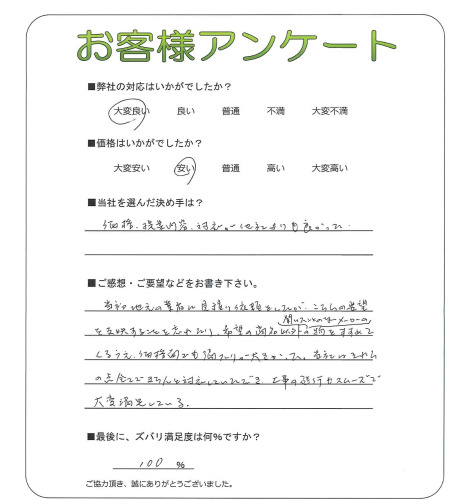 お客様アンケート
■弊社の対応はいかがでしたか？
大変良い 良い 普通 不満 大変不満
■価格はいかがでしたか？
大変安い 安い 普通 高い 大変高い
■当社を選んだ決め手は？
価格、提案内容、対応が他社よりも良かった。
■ご感想・ご要望などをお書き下さい。
当初地元の業者に見積り依頼をしたが、こちらの希望
希望の商品以外の物をすすめて
くるうえ、価格面でも
の点全てできちんと対応していただき、工事の進行もスムーズで
大変満足している。
■最後に、ズバリ満足度は何%ですか？
100 %
ご協力頂き、誠にありがとうございました。